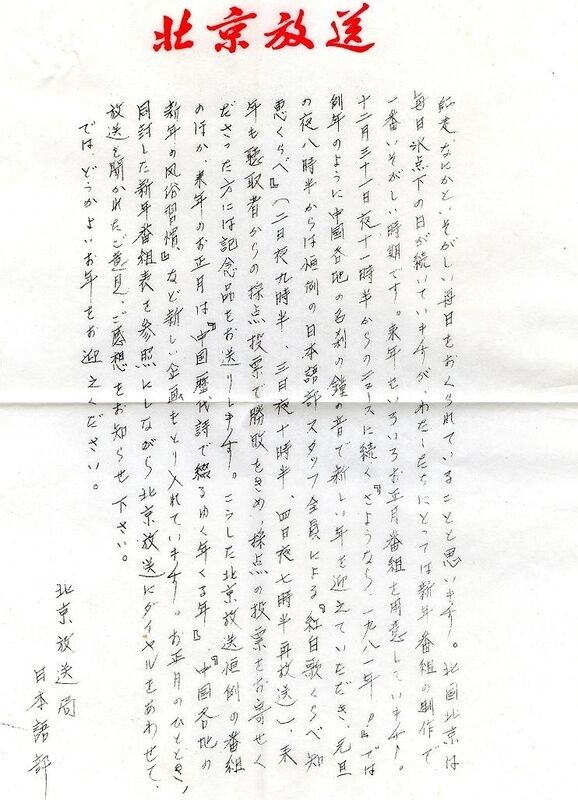 北京放送
師走、なにかといそがしい毎日をおくられていることと思います。北国北京は
毎日氷点下の日が続いていますが、わたしたちにとっては新年番組の制作で
一番いそがしい時期です。来年もいろいろお正月番組を用意しています。
十二月三十一日夜十一時半からのニュースに続く『さようなら、一九八一年』では
例年のように中国各地の名刹の鐘の音で新しい年を迎えていただき、元旦
の夜八時半からは恒例の日本語部スタッフ全員による『紅白歌くらべ知
恵くらべ』（二日夜九時半、三日夜十時半、四日夜七時半再放送）、来
年も聴取者からの採点投票で勝敗をきめ、採点の投票をお寄せく
ださった方には記念品をお送りします。こうした北京放送恒例の番組
のほか、来年のお正月は『中国歴代詩で綴るゆく年くる年』、『中国各地の
新年の風俗習慣』など新しい企画もとり入れています。お正月のひととき、
同封した新年番組表を参照にしながら北京放送にダイヤルをあわせて、
放送を聞かれたご意見、ご感想をお知らせ下さい。
では、どうかよいお年をお迎えください。
北京放送局
日本語部